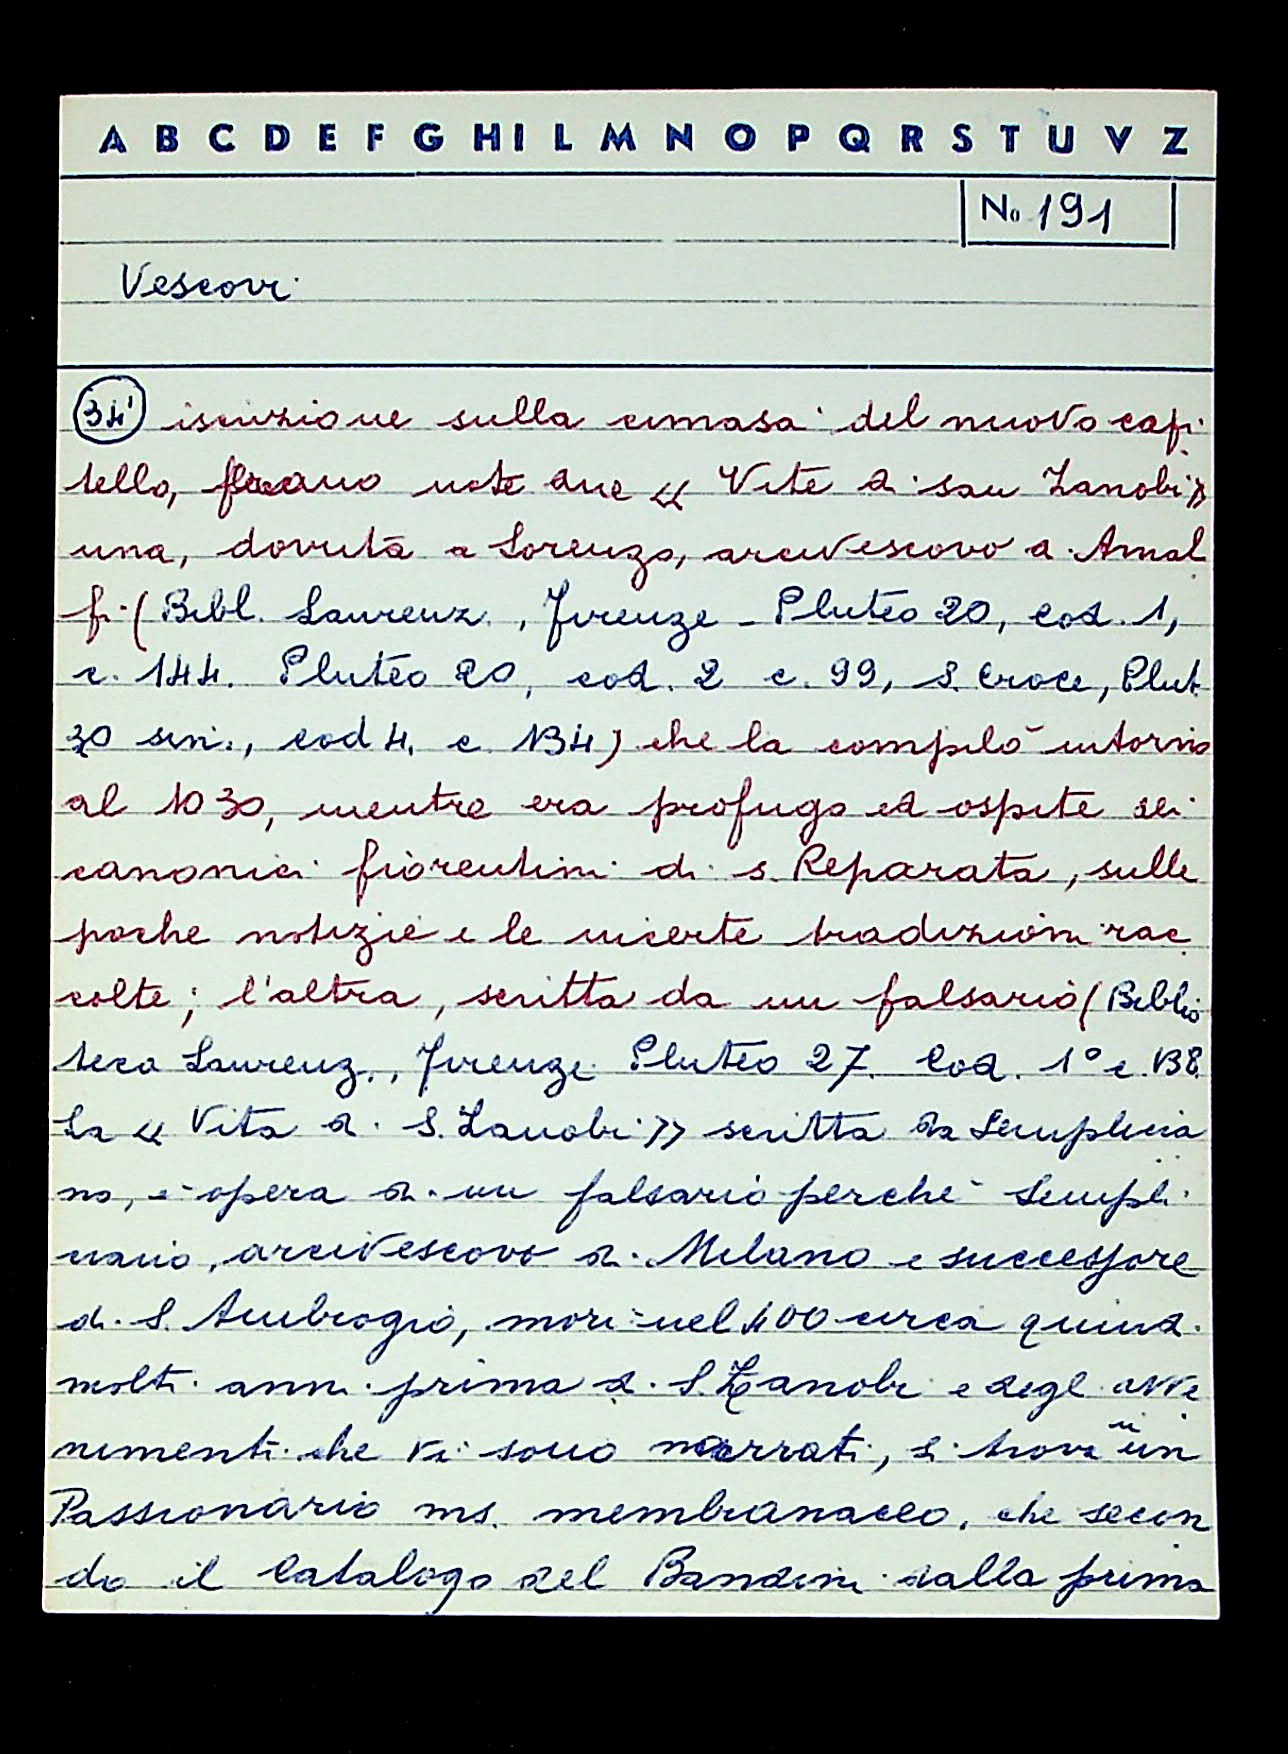 A B C D E F G H I L M N O P Q R S T U V Z
No 191
Vescovi
34' iscrizione sulla cimasa del nuovo capi
tello, furano note due « Vite di san Zanobi»
una, dovuta a Lorenzo, arcivescovo d'Amal
fi (Bibl. Laurenz., Firenze - Pluteo 20, cod. 1,
c. 144. Pluteo 20, cod. 2 c. 99, S. Croce, Plut.
30 sin., cod 4, c 134) che la compilò intorno
al 1030, mentre era profugo ed ospite dei
canonici fiorentini di s. Reparata, sulle
poche notizie e le incerte tradizioni rac
colte; l'altra, scritta da un falsario (Biblio
teca Laurenz., Firenze Pluteo 27. Cod. 1° c. 138
La « Vita di S. Zanobi» scritta da Semplicia
no, è opera di un falsario perchè Sempli
ciano, arcivescovo di Milano e successore
di S. Ambrogio, morì nel 400 circa quindi
molti anni prima di S. Zanobi e degli avve
nimenti che vi sono narrati, si trova in un
Passionario ms. membranaceo, che secon
do il Catalogo del Bandini dalla prima